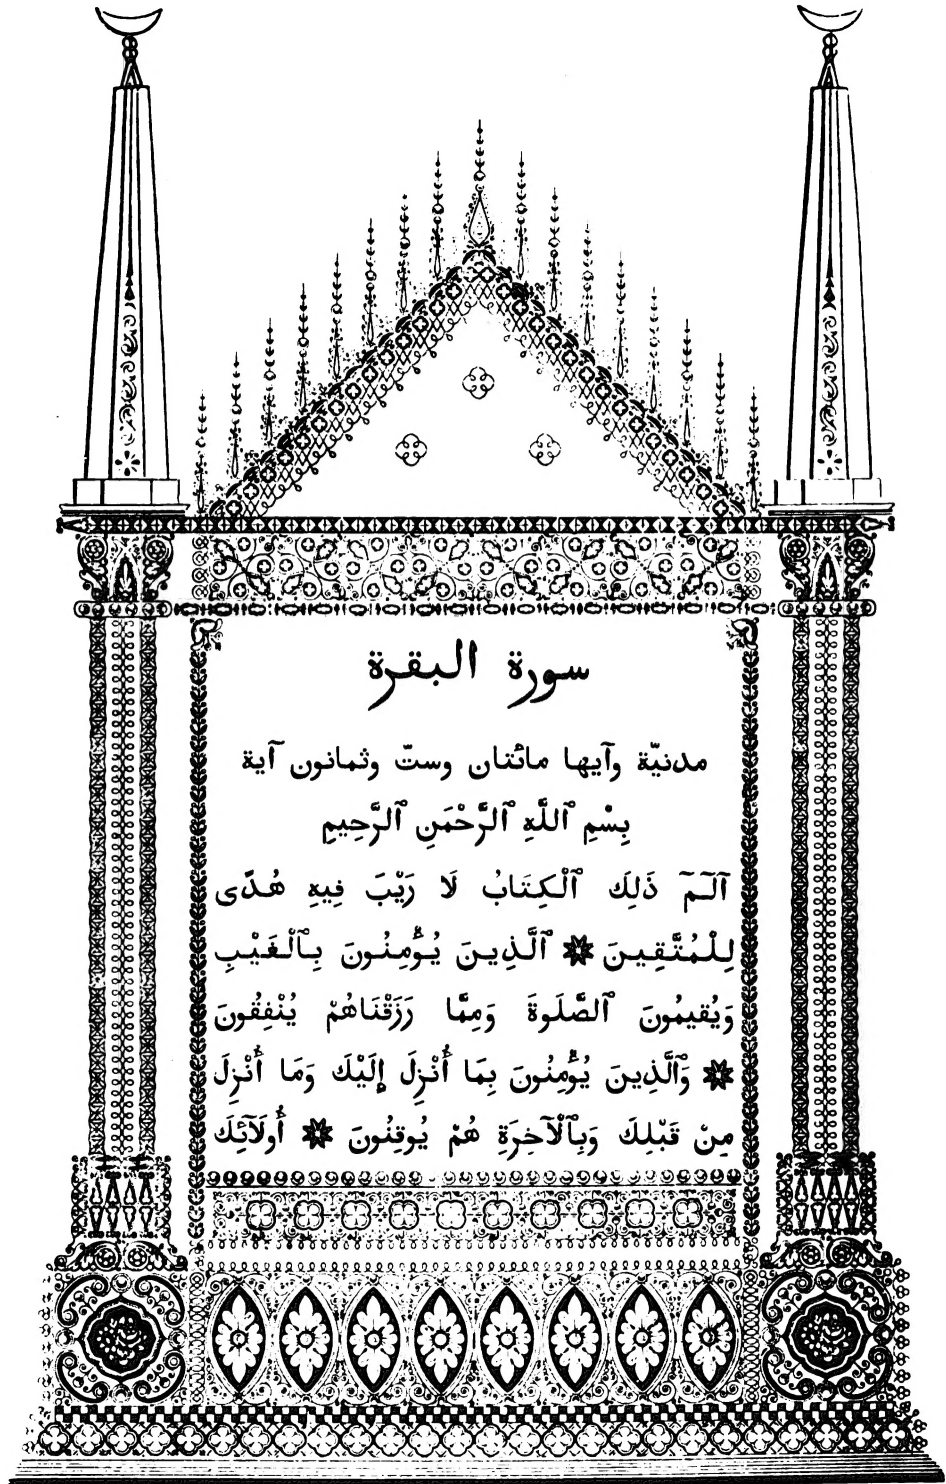 سورة البقرة
مدنيّة وآيها مائتان وستّ وثمانون آية
بِسْمِ ٱللَّهِ ٱلرَّحْمَنِ ٱلرَّحِيمِ
آلَمَ ذَلِكَ ٱلْكِتَابُ لَا رَيْبَ فِيهِ هُدًى
لِلْمُتَّقِينَ ✷ ٱلَّذِينَ يُؤْمِنُونَ بِٱلْغَيْبِ
وَيُقيمُونَ ٱلصَّلَوةَ وَمِمَّا رَزَقْنَاهُمْ يُنْفِقُونَ
✷ وَٱلَّذِينَ يُؤْمِنُونَ بِمَا أُنْزِلَ إِلَيْكَ وَمَا أُنْزِلَ
مِنْ قَبْلِكَ وَبِٱلْآخِرَةِ هُمْ يُوقِنُونَ ✷ أُولَآئِكَ